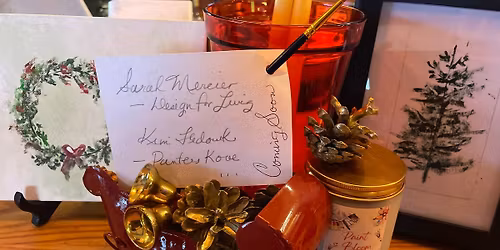 Sarah Mercier
— Design for Living
Kim
— Painters Kove
...
Coming Soon
Paint